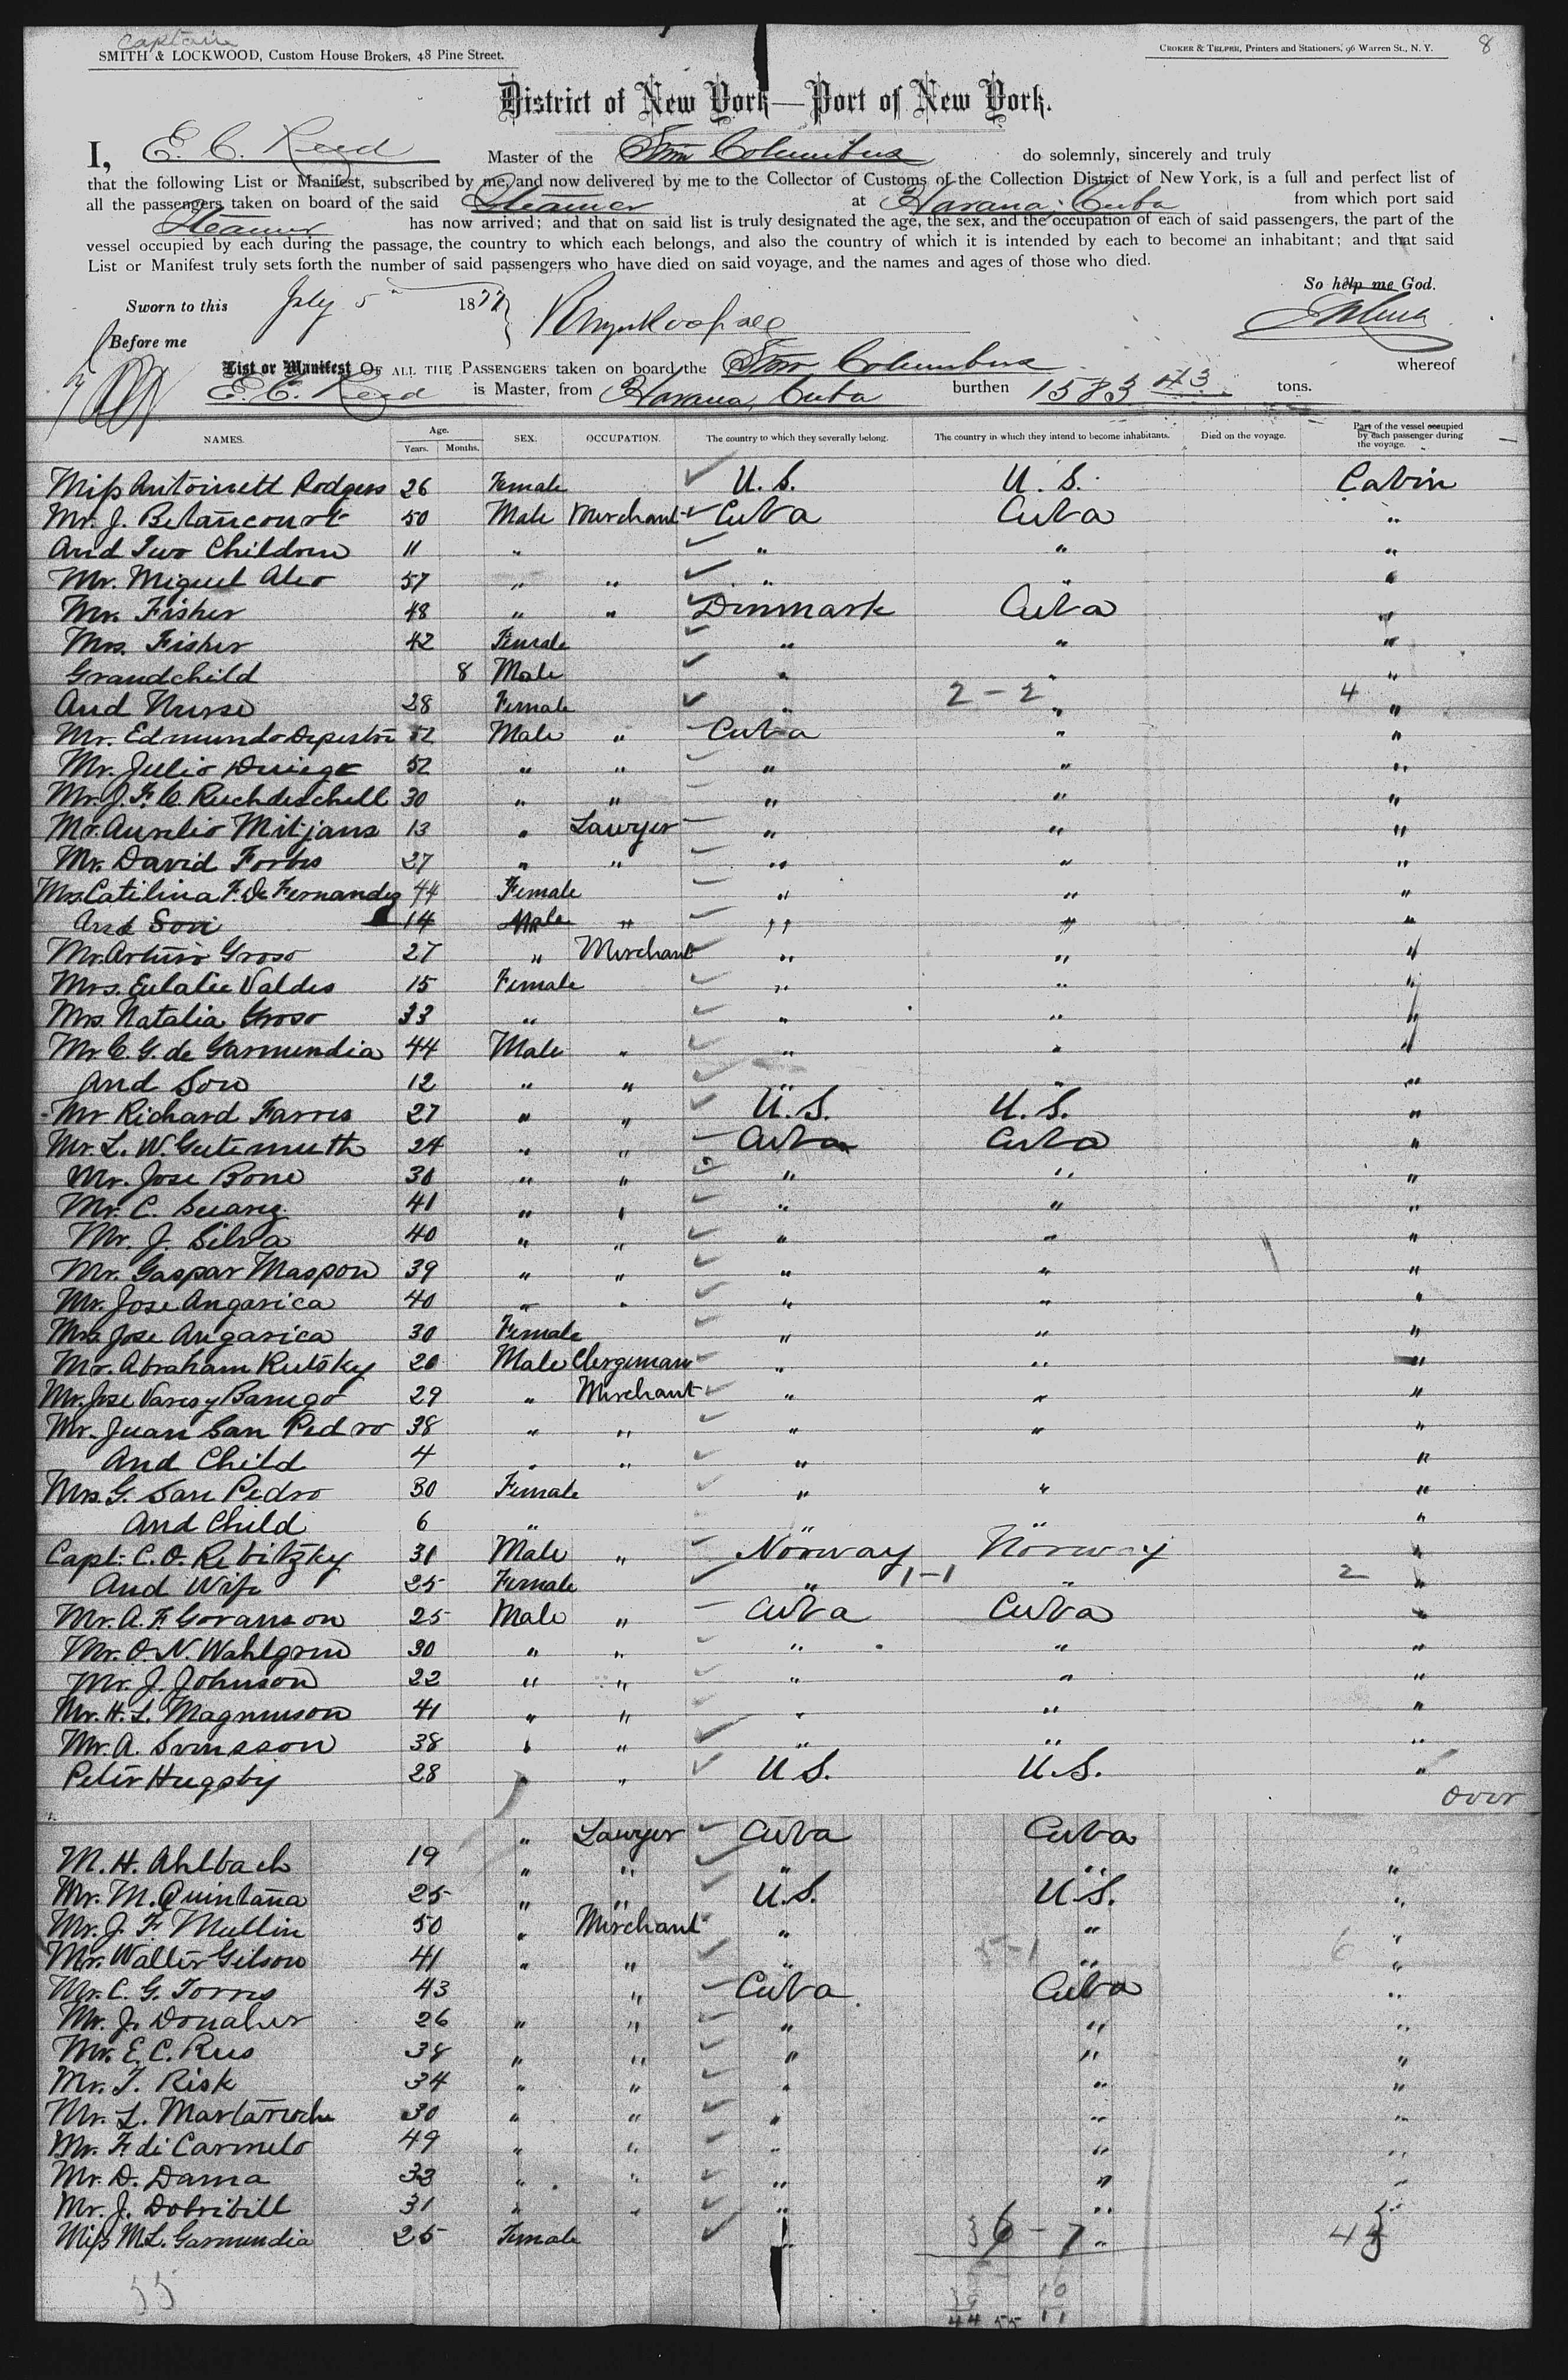 Captain
SMITH & LOCKWOOD, Custom House Brokers, 48 Pine Street.
CROKER & TELFER, Printers and Stationers, 96 Warren St., N. Y. 8
District of New York—Port of New York.
I, E. C. Reed Master of the Stmr Columbus do solemnly, sincerely and truly
that the following List or Manifest, subscribed by me, and now delivered by me to the Collector of Customs of the Collection District of New York, is a full and perfect list of
all the passengers taken on board of the said Steamer at Havana, Cuba from which port said
Steamer has now arrived; and that on said list is truly designated the age, the sex, and the occupation of each of said passengers, the part of the
vessel occupied by each during the passage, the country to which each belongs, and also the country of which it is intended by each to become an inhabitant; and that said
List or Manifest truly sets forth the number of said passengers who have died on said voyage, and the names and ages of those who died.
So help me God.
Sworn to this July 5 1877
Before me
List or Manifest OF ALL THE PASSENGERS taken on board the Stmr Columbus whereof
E. C. Reed is Master, from Havana, Cuba burthen 1583 43 tons.
NAMES. Age. Years. Months. SEX. OCCUPATION. The country to which they severally belong. The country in which they intend to become inhabitants. Died on the voyage. Part of the vessel occupied by each passenger during the voyage.
Miss Antoinett Rodgers 26 Female U.S. U.S. Cabin
Mr. J. Betancourt 50 Male Merchant Cuba Cuba "
And Two Children 11 " " " "
Mr. Miguel Aleo 57 " " " " "
Mr. Fisher 48 " " Dinmark Cuba "
Mrs. Fisher 42 Female " " "
Grandchild 8 Male " " "
And Nurse 28 Female " 2-2 " 4 "
Mr. Edmundo 52 Male " Cuba " "
Mr. Julio 52 " " " " "
Mr. J. F. C. Ruchdeschell 30 " " " " "
Mr. Aurelio Mitjans 13 " Lawyer " " "
Mr. David Forbes 27 " " " " "
Mrs. Catilina F. De Fernandez 44 Female " " "
And Son 14 Male " " " "
Mr. Arturo Groso 27 " Merchant " " "
Mrs. Eulalie Valdes 15 Female " " "
Mrs. Natalia Groso 33 " " " "
Mr. C. G. de Garmendia 44 Male " " " "
And Son 12 " " " " "
Mr Richard Farres 27 " " U.S. U.S. "
Mr. L. W. Gutemuth 24 " " Cuba Cuba "
Mr. Jose Bone 30 " " " " "
Mr. C. Suarez 41 " " " " "
Mr. J. Silva 40 " " " " "
Mr. Gaspar Maspon 39 " " " " "
Mr. Jose Angarica 40 " " " " "
Mrs Jose Angarica 30 Female " " "
Mr. Abraham Rutsky 20 Male Clergiman " " "
Mr. Jose Vares y Banego 29 " Merchant " " "
Mr. Juan San Pedro 38 " " " " "
And Child 4 " " " "
Mrs G. San Pedro 30 Female " " "
And Child 6 " " " "
Capt. C. O. Rebitzky 31 Male " Norway Norway "
And Wife 25 Female " 1-1 " 2 "
Mr. A. F. Goranson 25 Male " Cuba Cuba "
Mr. O. N. Wahlgren 30 " " " " "
Mr. J. Johnson 22 " " " " "
Mr. H. L. Magnuson 41 " " " " "
Mr. A. Svensson 38 " " " " "
Peter Hugsby 28 " " U.S. U.S. "
Over
M. H. Ahlbach 19 " Lawyer Cuba Cuba
Mr. M. Quintana 25 " " " " "
Mr. J. F. Mullin 50 " " U.S. U.S. "
Mr. Walter Gilson 41 " Merchant " 5-1 " 6 "
Mr. C. G. Torres 43 " " Cuba Cuba "
Mr. J. Donaher 26 " " " " "
Mr. E. C. Rees 38 " " " " "
Mr. T. Risk 34 " " " " "
Mr. L. 30 " " " " "
Mr. F. di Carmelo 49 " " " " "
Mr. D. Dama 33 " " " " "
Mr. J. Dobribill 31 " " " " "
Miss M. L. Garmendia 25 Female "
55
44 55 11